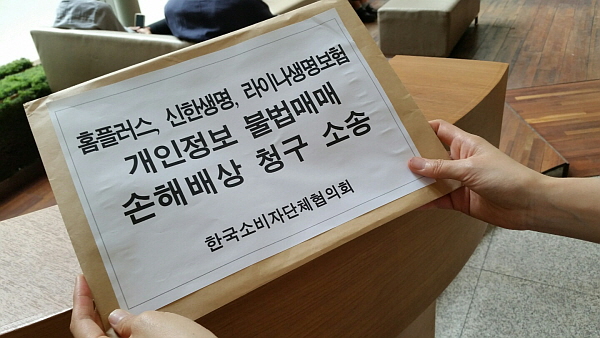 홈플러스, 신한생명, 라이나생명보험
개인정보 불법매매
손해배상 청구 소송
한국소비자단체협의회